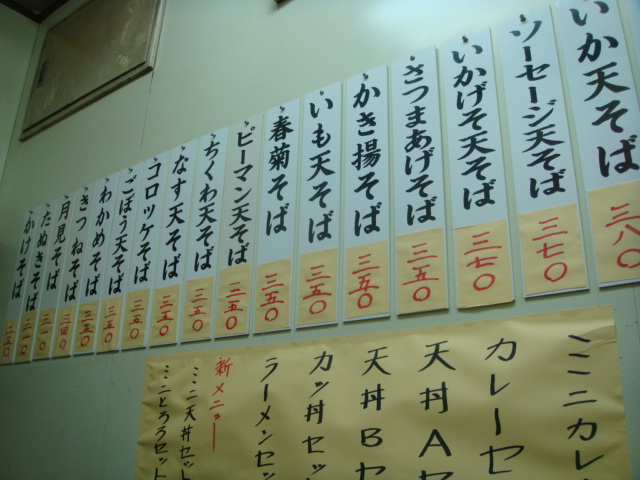 いか天そば 三八〇
ソーセージ天そば 三七〇
いかげそ天そば 三七〇
さつまあげそば 三五〇
かき揚そば 三五〇
いも天そば 三五〇
春菊そば 三五〇
ピーマン天そば 三五〇
ちくわ天そば 三五〇
なす天そば 三五〇
コロッケそば 三五〇
ごぼう天そば 三五〇
わかめそば 三五〇
きつねそば 三五〇
月見そば
たぬきそば 三一〇
かけそば
ミニカレ
カレーセ
天丼A
天丼B
カツ丼セッ
ラーメンセッ
新メニュー
ミニ天丼セット
ミニとろろセット